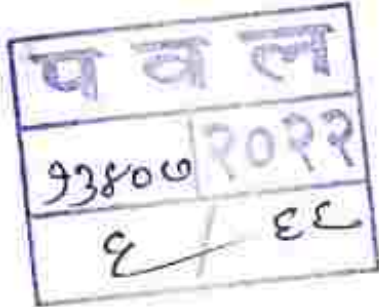 प व ल
१३४०७ २०२२
६ / ६६